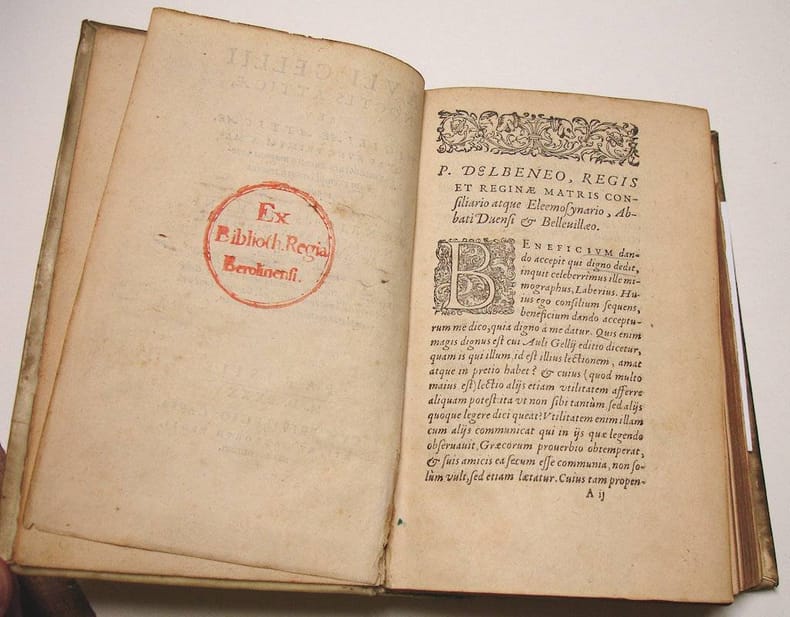 Ex
Biblioth. Regia
Berolinensi.
P. DELBENEO, REGIS
ET REGINÆ MATRIS CON-
siliario atque Eleemosynario, Ab-
bati Duensi & Belleuillæo.
BENEFICIVM dan-
do accepit qui digno dedit,
inquit celeberrimus ille mi-
mographus, Laberius. Hu-
ius ego consilium sequens,
beneficium dando acceptu-
rum me dico, quia digno à me datur. Quis enim
magis dignus est cui Auli Gellij editio dicetur,
quam is qui illum, id est illius lectionem, amat
atque in pretio habet? & cuius (quod multo
maius est) lectio alijs etiam vtilitatem afferre
aliquam potest: ita vt non sibi tantùm, sed alijs
quoque legere dici queat? Vtilitatem enim illam
cum alijs communicat qui in ijs quæ legendo
obseruauit, Græcorum prouerbio obtemperat,
& suis amicis ea secum esse communia, non so-
lùm vult, sed etiam lætatur. Cuius tam propen-
A ij